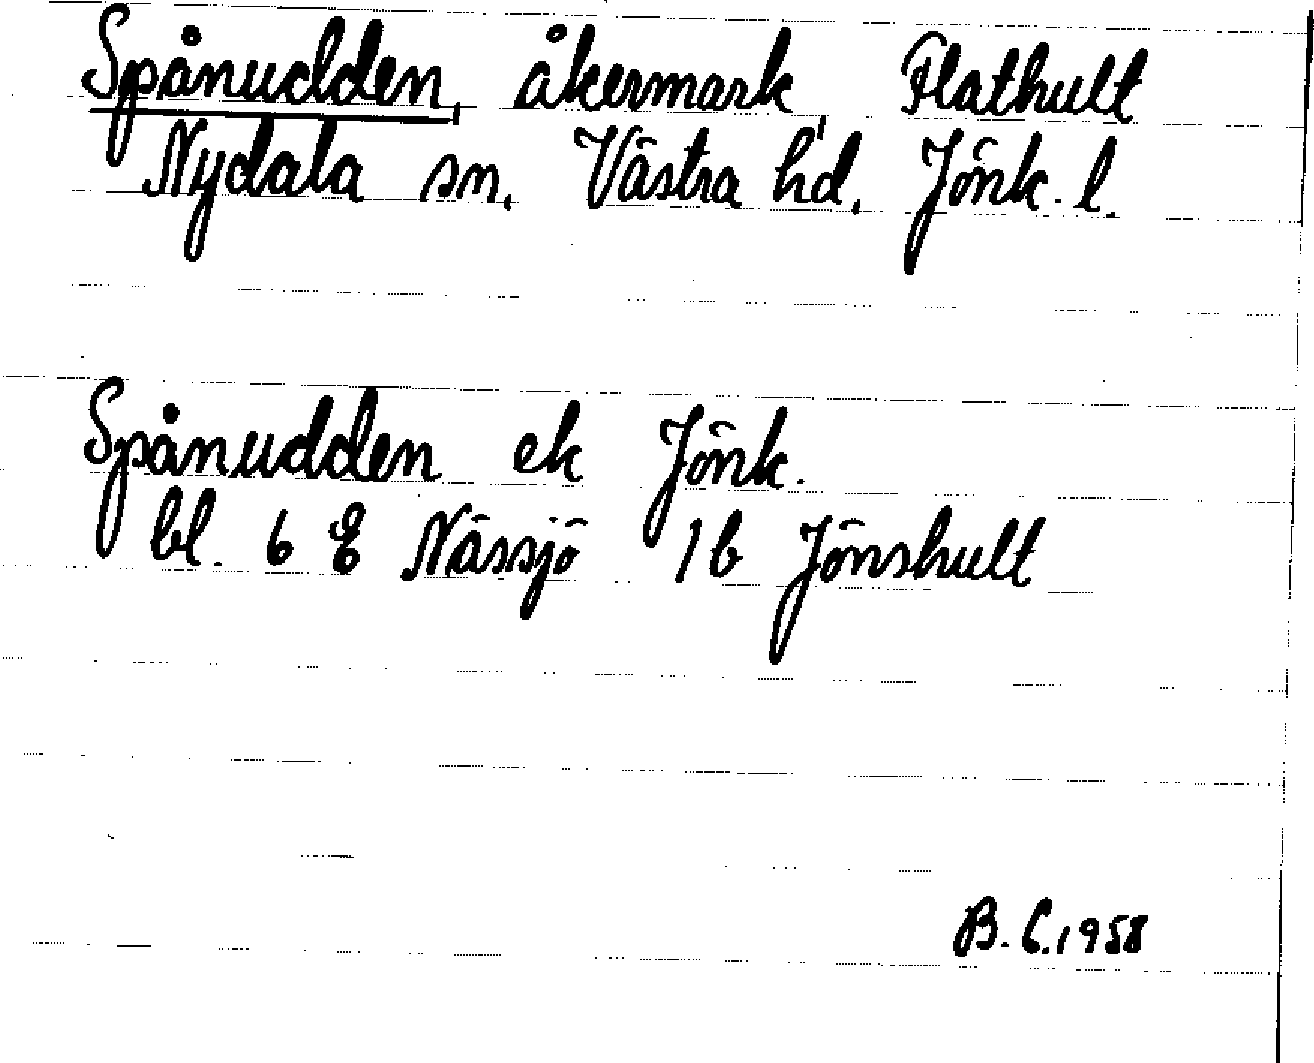 Spånudden, åkermark, Flathult
Nydala sn. Västra hd. Jönk. l.
Spånudden ek Jönk.
bl. 6 E Nässjö 1 b Jönshult
B. C. 1958